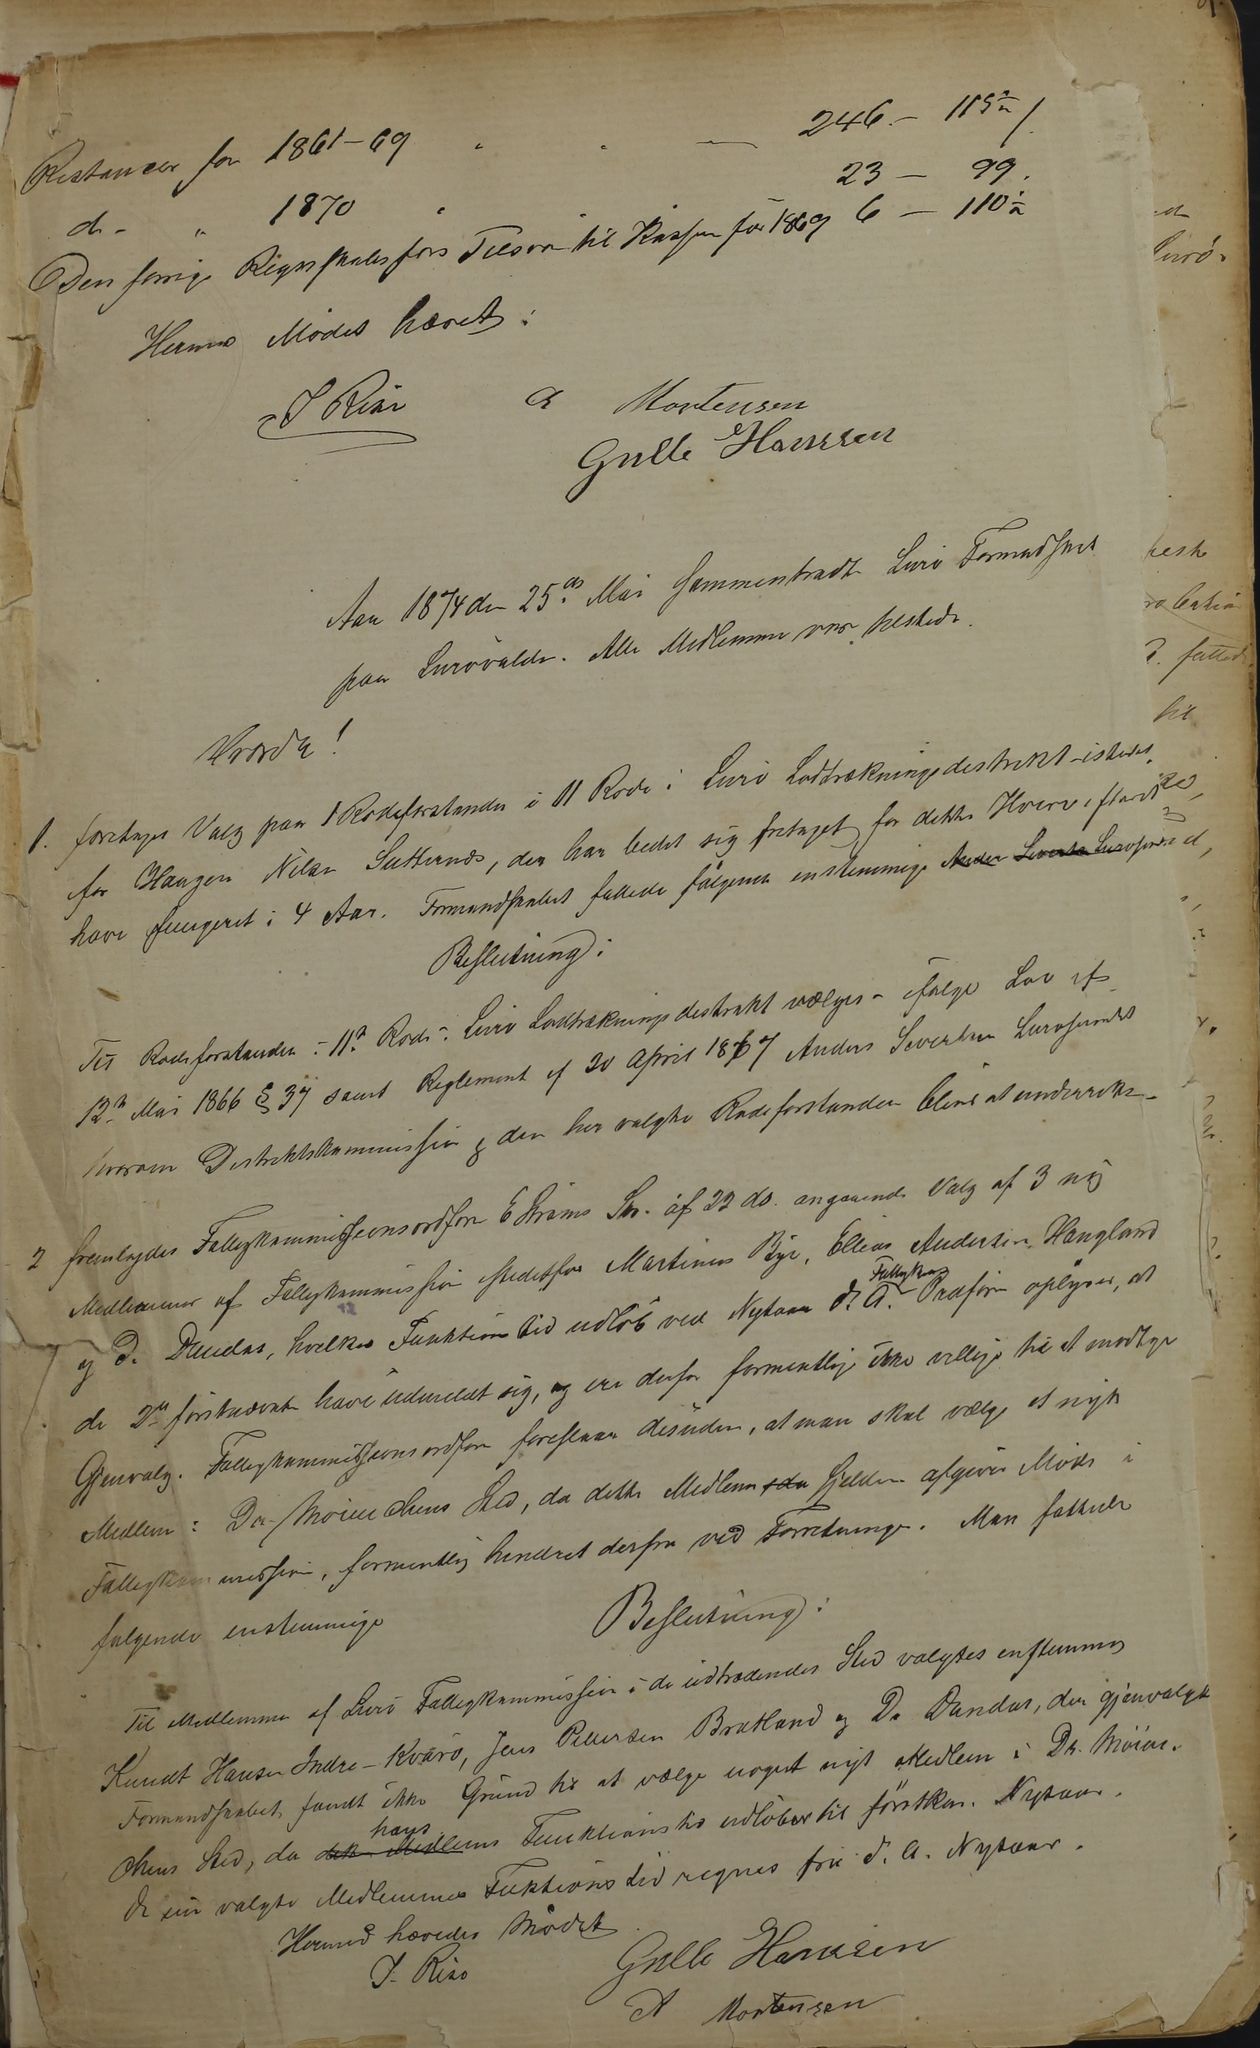 Restancer for 1861-69 " " — 246 - 115 /
do - " 1870 " 23 - 99.
Den forrige Regnskabsførs Tilsvar til Kassen for 1869 6 - 110
Hermed Mødet hævet:
J Riise A Mortensen
Gulle Hanssen
Aar 1874 den 25de Mai sammentraadte Lurø Formandskab
paa Lurøvalde. Alle Medlemmer var tilstede.
1. foretages Valg paa 1 Rodeforstander i 11 Rode i Lurø Lodtrækningsdestrikt istedet
for Haagen Nilsen Sætternes, der har bedet sig fritaget for dette Hverv efter at
have fungeret i 4 Aar. Formandskabet fattede følgende enstemmige
Beslutning:
Til Rodeforstander i 11te Rode i Lurø Lodtræknings destrikt vælges - ifølge Lov af
12te Mai 1866 § 37 samt Reglement af 20 April 1867 Anders Sivertsen Lurøsundet
hvorom Destriktskommission og den her valgte Rodeforstander bliver at underrette -
2 fremlagdes Fattigkommissionsordfører E Strøms Skr. af 22 ds. angaaende Valg af 3 nye
Medlemmer af Fattigkommission istedetfor Martinus Bye, Ellias Andersen Haugland
og D. Dundas, hvilkes Funktions tid udløb ved Nytaar d. A. Fattigkom Ordføren oplyser, at
de 2de førstnævnte have udmeldt sig, og ere derfor formentlig ikke villige til at modtage
Gjenvalg. Fattigkommissionsordfører foreslaar desuden, at man skal vælge et nyt
Medlem i Dr. Møinichens Sted, da dette Medlem sjelden afgiver Møde i
Fattigkommission, formentlig hindret derfra ved Forretninger. Man fattede
følgende enstemmige Beslutning:
Til Medlemmer af Lurø Fattigkommission i de udtrædendes Sted valgtes enstemmig
Knudt Hansen Indre-Kvarø, Jens Pedersen Bratland og D. Dundas, der gjenvalgte
Formandskabet fandt ikke Grund til at vælge noget nyt Medlem i Dr. Møini-
chens Sted, da hans Funktionstid udløber til førstkom. Nytaar.
De nu valgte Medlemmers Fuktions tid regnes fra d. A. Nytaar.
Hermed hævedes Mødet
J. Riise Gulle Hanssen
A Mortensen